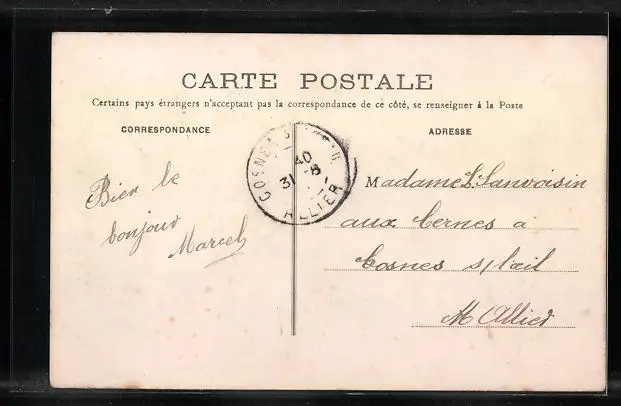 CARTE POSTALE
Certains pays étrangers n'acceptant pas la correspondance de ce côté, se renseigner à la Poste
CORRESPONDANCE
ADRESSE
COSNE
31
ALLIER
Bien le
bonjour
Marcel
Madame Sanvoisin
aux Cernes a
Cosnes s/l'œil
Allier